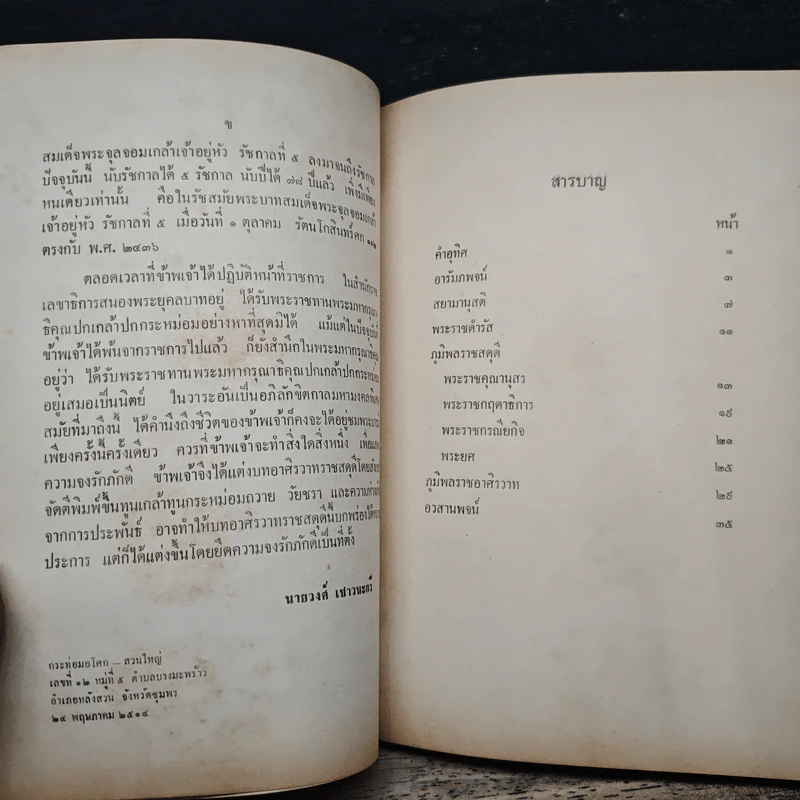 ช
สมเด็จพระจุลจอมเกล้าเจ้าอยู่หัว รัชกาลที่ ๕ ลงมาจนถึงรัชกาล
ปัจจุบันนี้ นับรัชกาลได้ ๕ รัชกาล นับปีได้ ๗๘ ปีแล้ว เพิ่งมีเพียง
หนเดียวเท่านั้น คือในรัชสมัยพระบาทสมเด็จพระจุลจอมเกล้า
เจ้าอยู่หัว รัชกาลที่ ๕ เมื่อวันที่ ๑ ตุลาคม รัตนโกสินทร์ศก ๑๑๒
ตรงกับ พ.ศ. ๒๔๓๖
ตลอดเวลาที่ข้าพเจ้าได้ปฏิบัติหน้าที่ราชการ ในสำนักราช
เลขาธิการสนองพระยุคลบาทอยู่ ได้รับพระราชทานพระมหากรุณา
ธิคุณปกเกล้าปกกระหม่อมอย่างหาที่สุดมิได้ แม้แต่ในปัจจุบันนี้
ข้าพเจ้าได้พ้นจากราชการไปแล้ว ก็ยังสำนึกในพระมหากรุณาธิคุณ
อยู่ว่า ได้รับพระราชทานพระมหากรุณาธิคุณปกเกล้าปกกระหม่อม
อยู่เสมอเป็นนิตย์ ในวาระอันเป็นอภิลักขิตกาลมหามงคลพิเศษ
สมัยที่มาถึงนี้ ได้คำนึงถึงชีวิตของข้าพเจ้าก็คงจะได้อยู่ชมพระบารมี
เพียงครั้งนี้ครั้งเดียว ควรที่ข้าพเจ้าจะทำสิ่งใดสิ่งหนึ่ง เพื่อแสดง
ความจงรักภักดี ข้าพเจ้าจึงได้แต่งบทอาศิรวาทราชสดุดีโดยสังเขป
จัดตีพิมพ์ขึ้นทูนเกล้าทูนกระหม่อมถวาย วัยชรา และความห่างเหิน
จากการประพันธ์ อาจทำให้บทอาศิรวาทราชสดุดีนี้บกพร่องได้หลาย
ประการ แต่ก็ได้แต่งขึ้นโดยยึดความจงรักภักดีเป็นที่ตั้ง
นายวงศ์ เชาวนะกวี
กระท่อมอโศก — สวนใหญ่
เลขที่ ๑๒ หมู่ที่ ๕ ตำบลบางมะพร้าว
อำเภอหลังสวน จังหวัดชุมพร
๒๔ พฤษภาคม ๒๕๑๔
สารบาญ
หน้า
คำอุทิศ ๑
อารัมภพจน์ ๓
สยามานุสติ ๗
พระราชดำรัส ๑๑
ภูมิพลราชสดุดี
พระราชคุณานุสร ๑๓
พระราชกฤดาธิการ ๑๙
พระราชกรณียกิจ ๒๑
พระยศ ๒๕
ภูมิพลราชอาศิรวาท ๒๙
อวสานพจน์ ๓๕